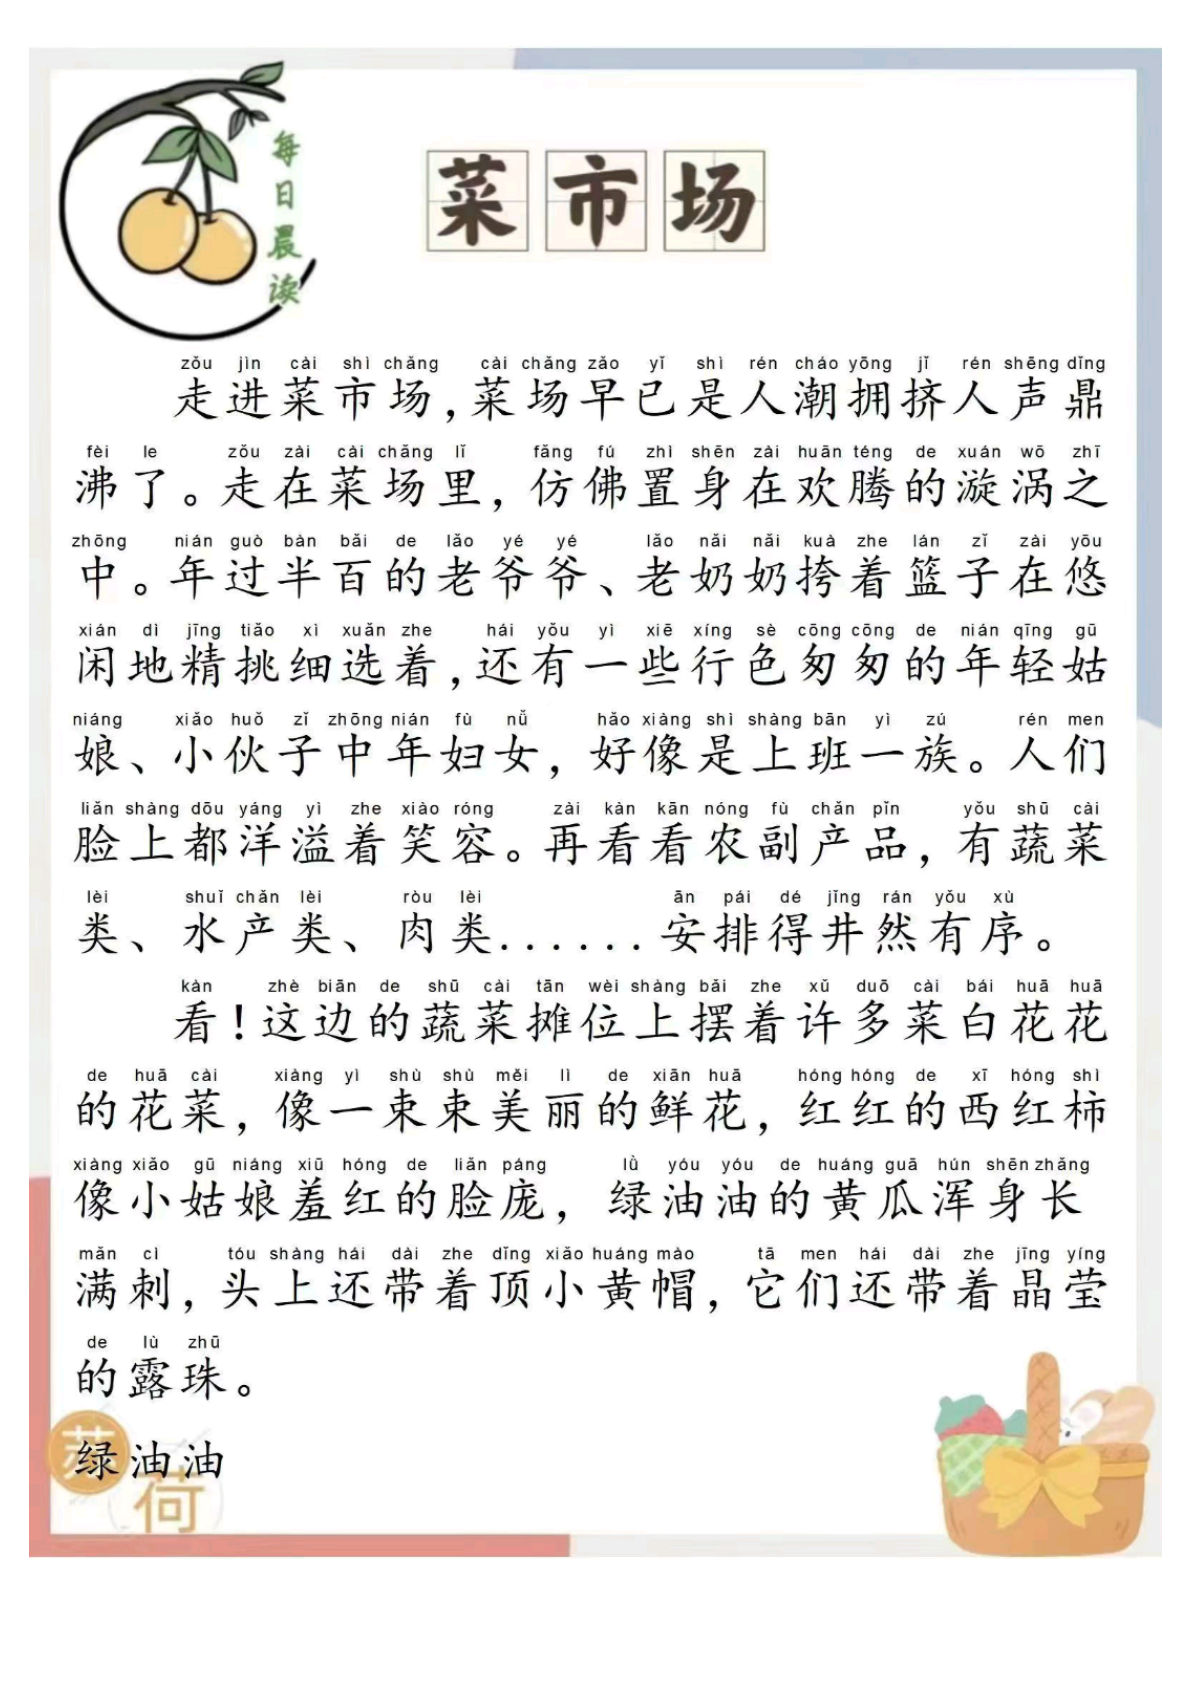 每日晨读
菜市场
zǒu jìn cài shì chǎng cài chǎng zǎo yǐ shì rén cháo yōng jǐ rén shēng dǐng
走进菜市场,菜场早已是人潮拥挤人声鼎
fèi le zǒu zài cài chǎng lǐ fǎng fú zhì shēn zài huān téng de xuán wō zhī
沸了。走在菜场里，仿佛置身在欢腾的漩涡之
zhōng nián guò bàn bǎi de lǎo yé yé lǎo nǎi nǎi kuà zhe lán zǐ zài yōu
中。年过半百的老爷爷、老奶奶挎着篮子在悠
xián dì jīng tiǎo xì xuǎn zhe hái yǒu yì xiē xíng sè cōng cōng de nián qīng gū
闲地精挑细选着,还有一些行色匆匆的年轻姑
niáng xiǎo huǒ zǐ zhōng nián fù nǚ hǎo xiàng shì shàng bān yì zú rén men
娘、小伙子中年妇女，好像是上班一族。人们
liǎn shàng dōu yáng yì zhe xiào róng zài kàn kān nóng fù chǎn pǐn yǒu shū cài
脸上都洋溢着笑容。再看看农副产品，有蔬菜
lèi shuǐ chǎn lèi ròu lèi ān pái dé jǐng rán yǒu xù
类、水产类、肉类......安排得井然有序。
kàn zhè biān de shū cài tān wèi shàng bǎi zhe xǔ duō cài bái huā huā
看!这边的蔬菜摊位上摆着许多菜白花花
de huā cài xiàng yì shù shù měi lì de xiān huā hóng hóng de xī hóng shì
的花菜，像一束束美丽的鲜花，红红的西红柿
xiàng xiǎo gū niáng xiū hóng de liǎn páng lǜ yóu yóu de huáng guā hún shēn zhǎng
像小姑娘羞红的脸庞，绿油油的黄瓜浑身长
mǎn cì tóu shàng hái dài zhe dǐng xiǎo huáng mào tā men hái dài zhe jīng yíng
满刺，头上还带着顶小黄帽，它们还带着晶莹
de lù zhū
的露珠。
绿油油
荷